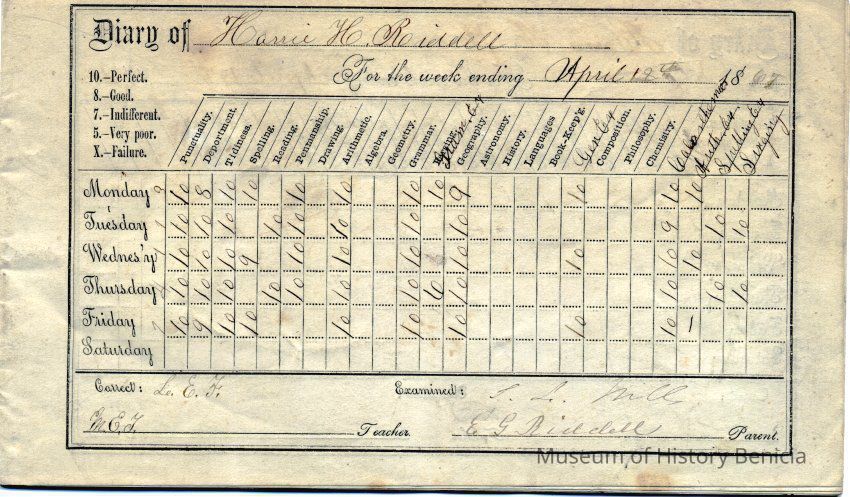 Diary of Harrie H. Riddell
For the week ending April 12th 186
10.-Perfect.
8.-Good.
7.-Indifferent.
5.-Very poor.
X.-Failure.
Punctuality. Deportment. Tidiness. Spelling. Reading. Penmanship. Drawing. Arithmetic. Algebra. Geometry. Grammar. Geography. Astronomy. History. Languages Book-Keep'g. Gen Ex Composition. Philosophy. Chemistry. Calisthenics Spelling Ex Singing
Monday 10 10 10 10 10 10 10 10 9 10 10 10
Tuesday 10 10 10 10 10 10 10 10 10 10 9 10 10
Wednes'y 10 10 10 9 10 10 10 10 10 10 10
Thursday 10 10 10 10 10 10 10 10 10 10 10
Friday 10 9 10 10 10 10 10 10 10 10 1
Saturday
Correct: L. E. F. Examined: S. L.
M.E.F. Teacher. E G Riddell Parent.
Museum of History Benicia